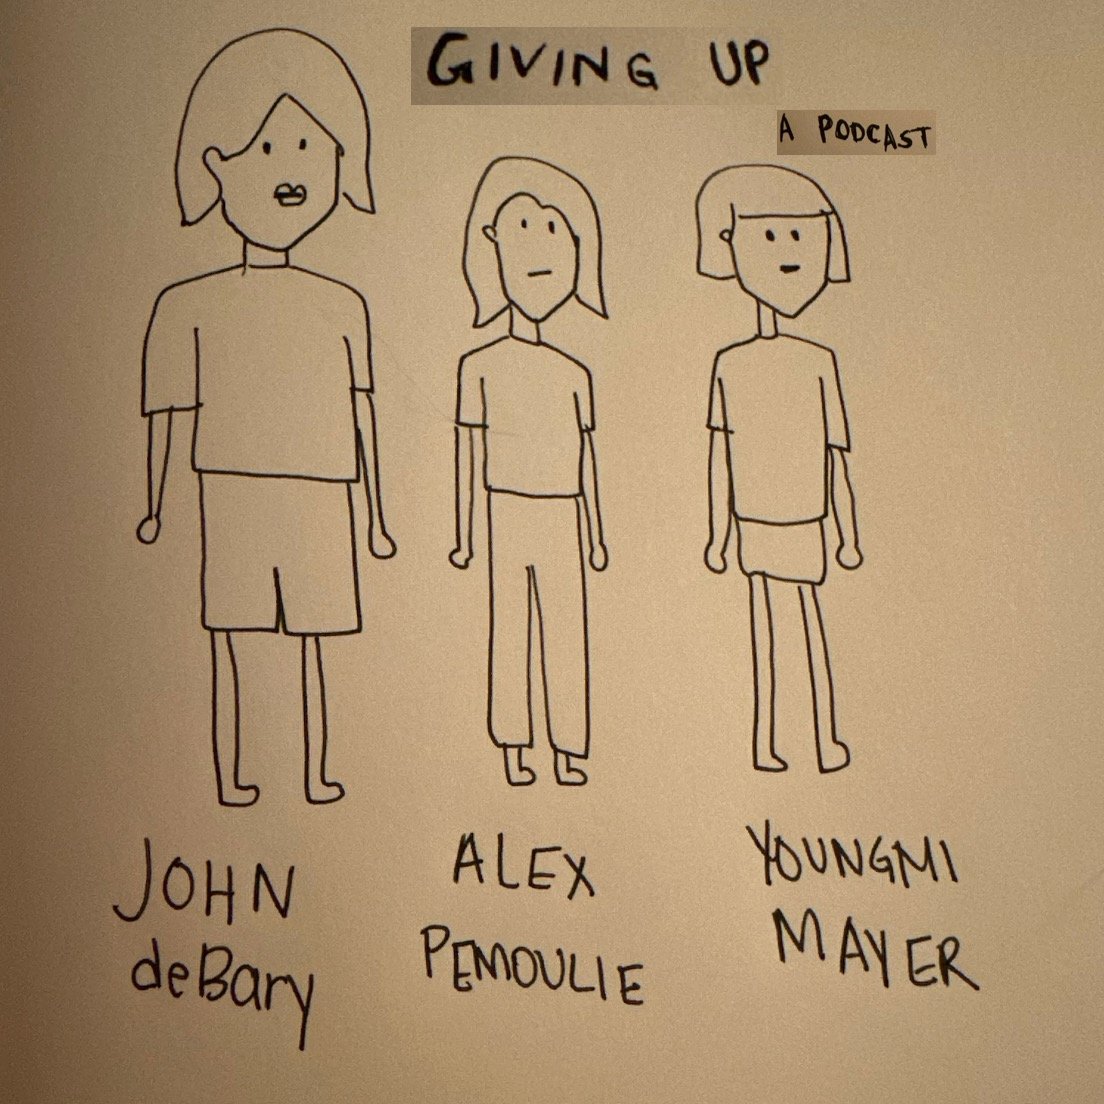 GIVING UP
A PODCAST
JOHN
deBary
ALEX
PEMOULIE
YOUNGMI
MAYER